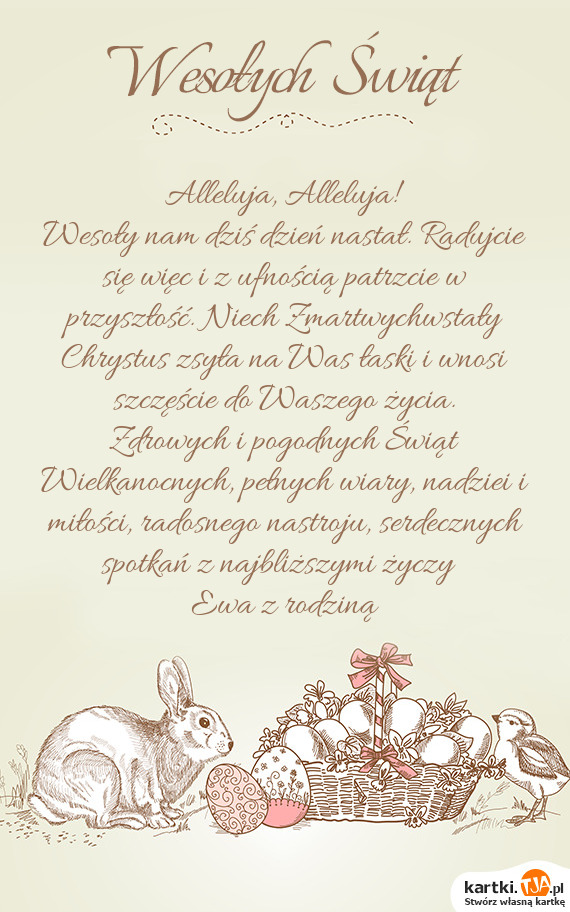 Wesołych Świąt
Alleluja, Alleluja!
Wesoły nam dziś dzień nastał. Radujcie
się więc i z ufnością patrzcie w
przyszłość. Niech Zmartwychwstały
Chrystus zsyła na Was łaski i wnosi
szczęście do Waszego życia.
Zdrowych i pogodnych Świąt
Wielkanocnych, pełnych wiary, nadziei i
miłości, radosnego nastroju, serdecznych
spotkań z najbliższymi życzy
Ewa z rodziną
kartki.TJA.pl
Stwórz własną kartkę